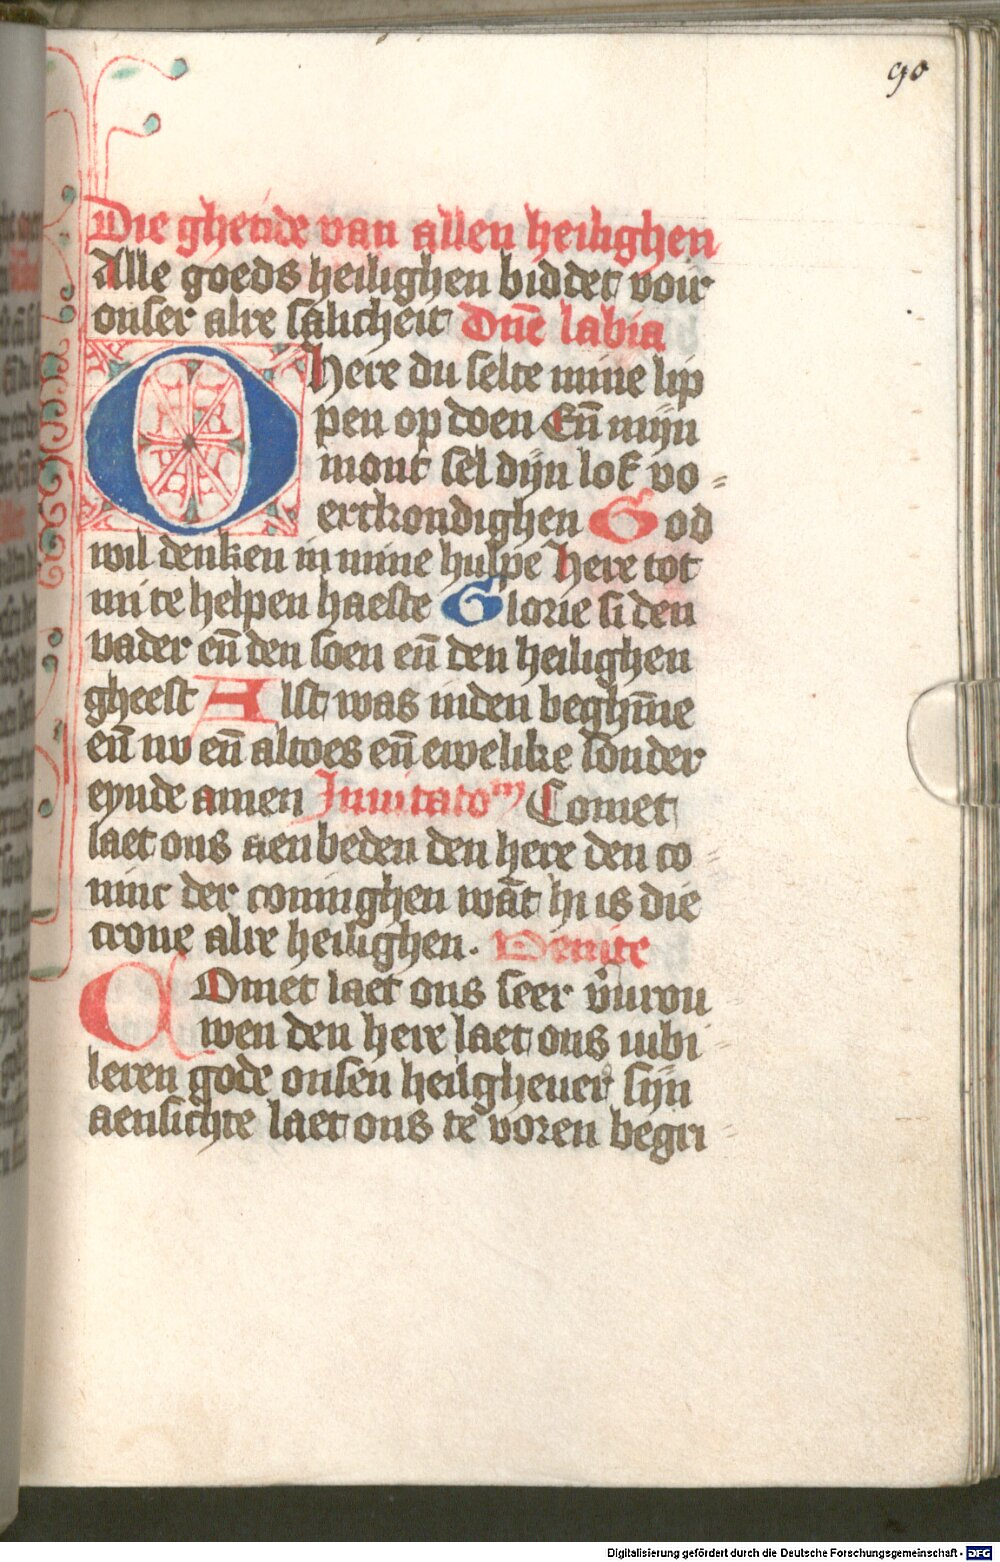 90
Die gheti​de van allen heilighen
Alle goeds heilighen biddet voir
onser alre salicheit Dn̄e labia
O here du selte mine lip
pen op doen En̄ mijn
mont sel dijn lof vo=
ertkondighen God
wil denken in mine hulpe here tot
mi te helpen haeste Glorie si den
vader en̄ den soen en̄ den heilighen
gheest Alst was inden beghin̄e
en̄ nv en̄ altoes en̄ ewelike sonder
eynde amen Inuitatoᵐ Comet
laet ons aen beden den here den co=
ninc der coninghen wāt hi is die
crone alre heilighen. Venite
Comet laet ons seer v̄urou
wen den here laet ons iubi
leren gode onsen heilgheuer sijn
aensichte laet ons te voren begri=
Digitalisierung gefördert durch die Deutsche Forschungsgemeinschaft - DFG